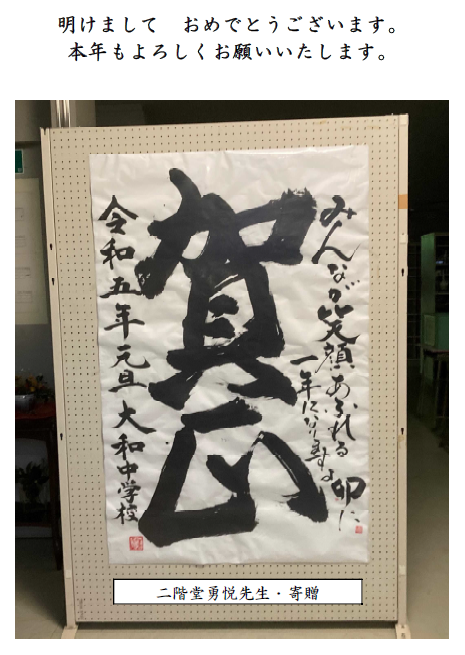 明けまして　おめでとうございます。
本年もよろしくお願いいたします。
みんなが笑顔あふれる
一年になりますよ
卯に
賀正
令和五年元旦 大和中学校
二階堂勇悦先生・寄贈